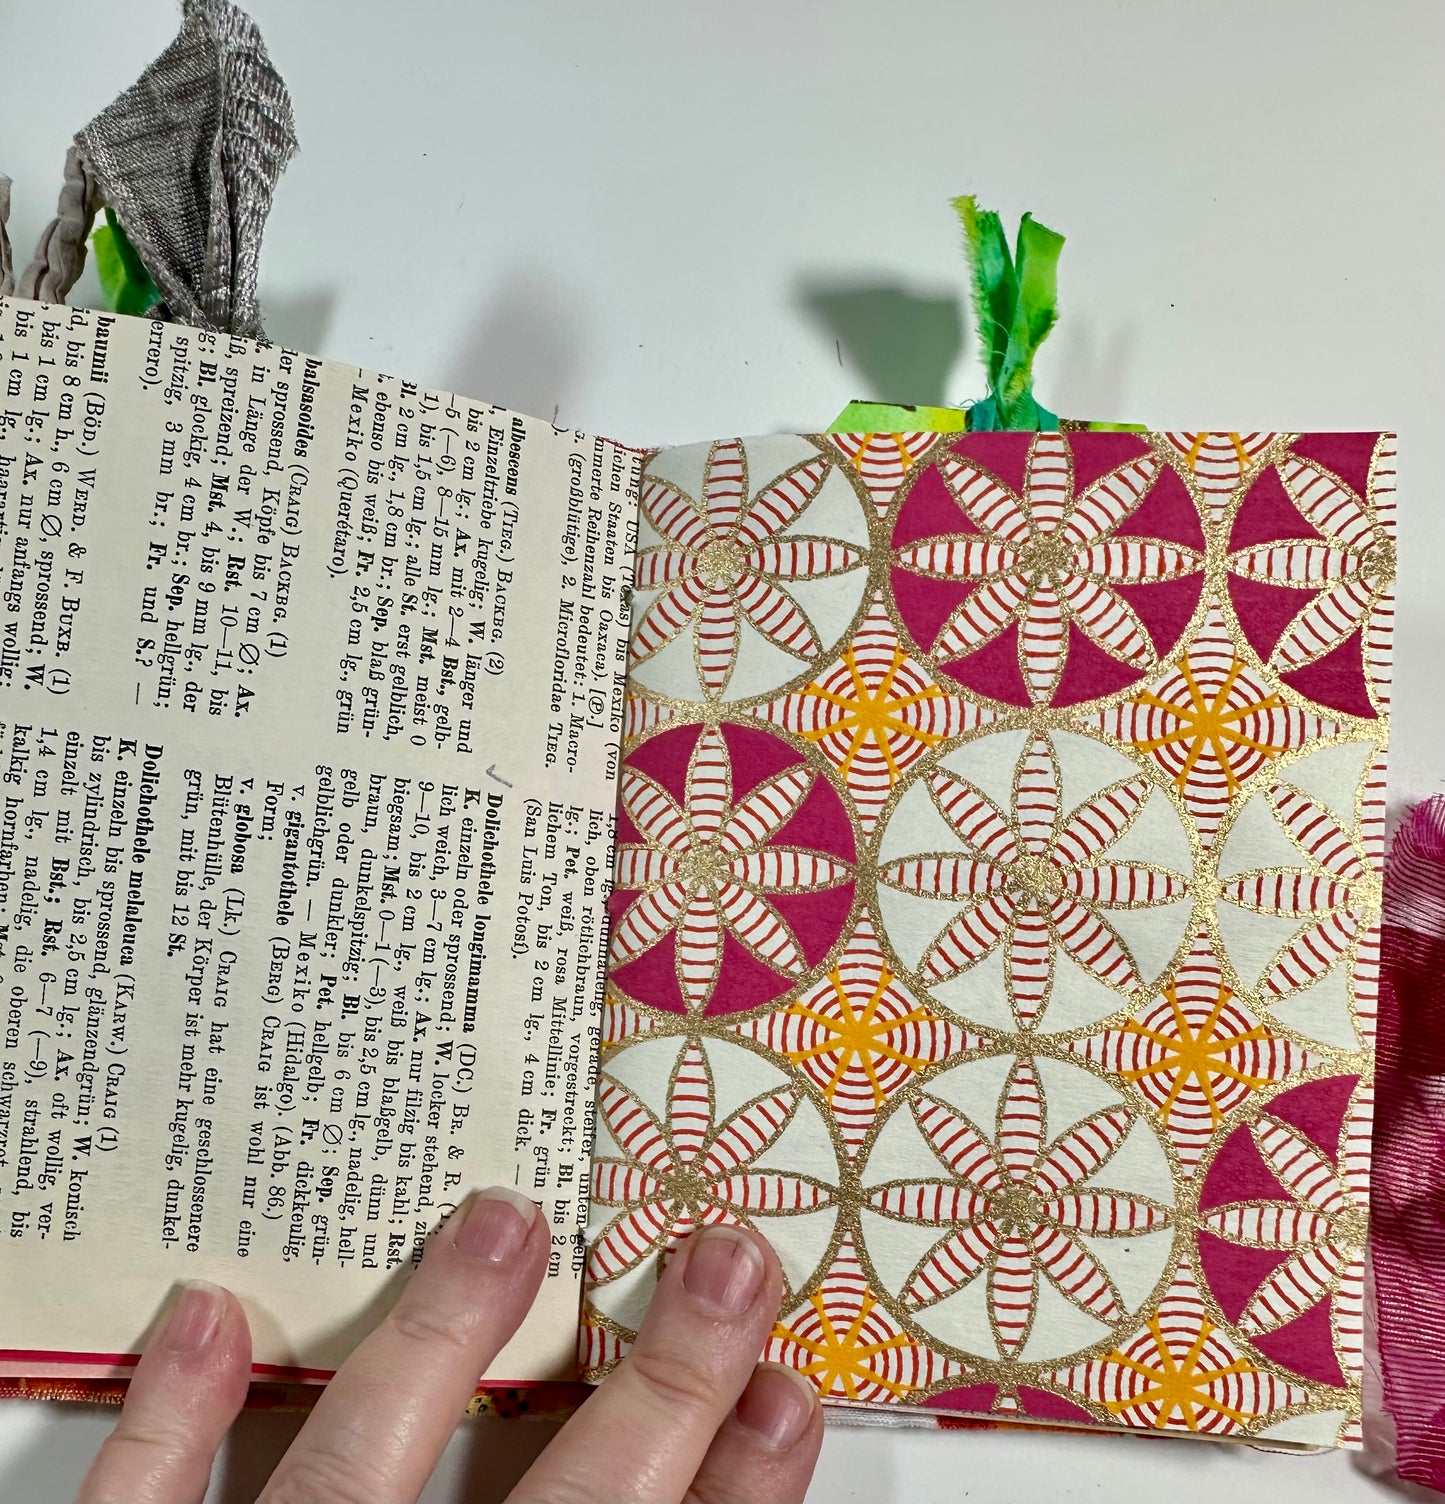 tung: USA (Texas) bis Mexiko (von
lichen Staaten bis Oaxaca). [Ⓟ.]
mmerte Reihenzahl bedeutet: 1. Macro-
. (großblütige), 2. Microfloridae Tieg.
).
albescens (Tieg.) Backbg. (2)
, Einzeltriebe kugelig; W. länger und
bis 2 cm lg.; Ax. mit 2—4 Bst., gelb-
—5 (—6), 8—15 mm lg.; Mst. meist 0
1), bis 1,5 cm lg.; alle St. erst gelblich,
Bl. 2 cm lg., 1,8 cm br.; Sep. blaß grün-
. ebenso bis weiß; Fr. 2,5 cm lg., grün
— Mexiko (Querétaro).
balsasoides (Craig) Backbg. (1)
der sprossend, Köpfe bis 7 cm Ø; Ax.
. in Länge der W.; Rst. 10—11, bis
iß, spreizend; Mst. 4, bis 9 mm lg., der
g; Bl. glockig, 4 cm br.; Sep. hellgrün;
spitzig, 3 mm br.; Fr. und S.? —
errero).
baumii (Böd.) Werd. & F. Buxb. (1)
id, bis 8 cm h, 6 cm Ø, sprossend; W.
, bis 1 cm lg.; Ax. nur anfangs wollig;
bis 1 cm lg.,
gerade, steifer, unten gelb-
lich, oben rötlichbraun, vorgestreckt; Bl. bis 2 cm
lg.; Pet. weiß, rosa Mittellinie; Fr. grün
lichem Ton, bis 2 cm lg., 4 cm dick. —
(San Luis Potosí).
Dolichothele longimamma (DC.) Br. & R.
K. einzeln oder sprossend; W. locker stehend, ziem-
lich weich, 3—7 cm lg.; Ax. nur filzig bis kahl; Rst.
9—10, bis 2 cm lg., weiß bis blaßgelb, dünn und
biegsam; Mst. 0—1 (—3), bis 2,5 cm lg., nadelig, hell-
braun, dunkelspitzig; Bl. bis 6 cm Ø; Sep. grün-
gelb oder dunkler; Pet. hellgelb; Fr. dickkeulig,
gelblichgrün. — Mexiko (Hidalgo). (Abb. 86.)
v. gigantothele (Berg) Craig ist wohl nur eine
Form;
v. globosa (Lk.) Craig hat eine geschlossenere
Blütenhülle, der Körper ist mehr kugelig, dunkel-
grün, mit bis 12 St.
Dolichothele melaleuca (Karw.) Craig (1)
K. einzeln bis sprossend, glänzendgrün; W. konisch
bis zylindrisch, bis 2,5 cm lg.; Ax. oft wollig, ver-
einzelt mit Bst.; Rst. 6—7 (—9), strahlend, bis
1,4 cm lg., nadelig, die oberen schwarzrot,
kalkig hornfarben; Mst.